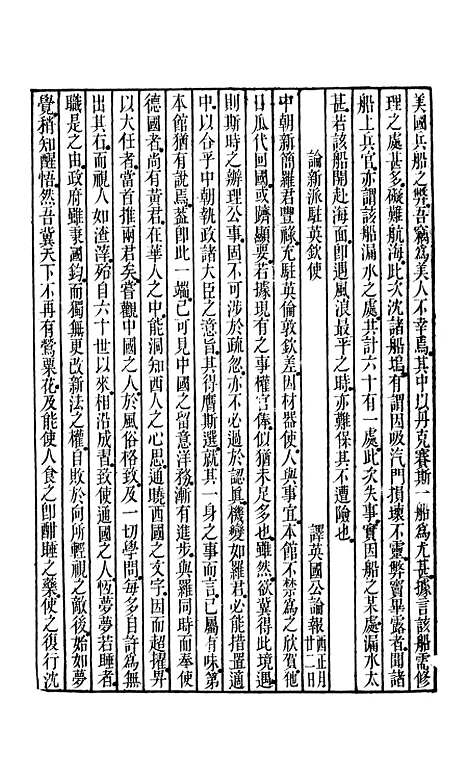 美國兵船之弊吾竊爲美人不幸焉其中以丹克賽斯一船爲尤甚據言該船需修
理之處甚多礙難航海此次沈諸船塢有謂因吸汽門損壞不靈弊竇畢露者聞諸
船上兵官亦謂該船漏水之處共計六十有一處此次失事實因船之某處漏水太
甚若該船開赴海面卽遇風浪最平之時亦難保其不遭險也
論新派駐英欽使
譯英國公論報西正月廿二日
中朝新簡羅君豐祿充駐英倫敦欽差因材器使人與事宜本館不禁爲之欣賀他
日瓜代回國或躋顯要若據現有之事權官俸似猶未足多也雖然欲冀得此境遇
則斯時之辦理公事固不可涉於疏忽亦不必過於認眞機變如羅君必能措置適
中以合乎中朝執政諸大臣之意旨其得膺斯選就其一身之事而言已屬有味第
本館猶有說焉蓋卽此一端已可見中國之留意洋務漸有進境與羅同時而奉使
德國者尚有黃君在華人之中能洞知西人之心思通曉西國之文字因而超擢畀
以大任者當首推兩君矣嘗觀中國之人於風俗格致及一切學問每多自許爲無
出其右而視人如渣滓殆自六十世以來相沿成習致使通國之人恆夢夢若睡者
職是之由政府雖秉國鈞而獨無更改新法之權自敗於向所輕視之敵後始如夢
覺稍知醒悟然吾冀天下不再有鶯粟花及能使人食之卽酣睡之藥使之復行沈